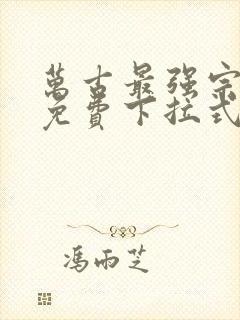 萬古最强宗
免費下拉式
馮雨芝